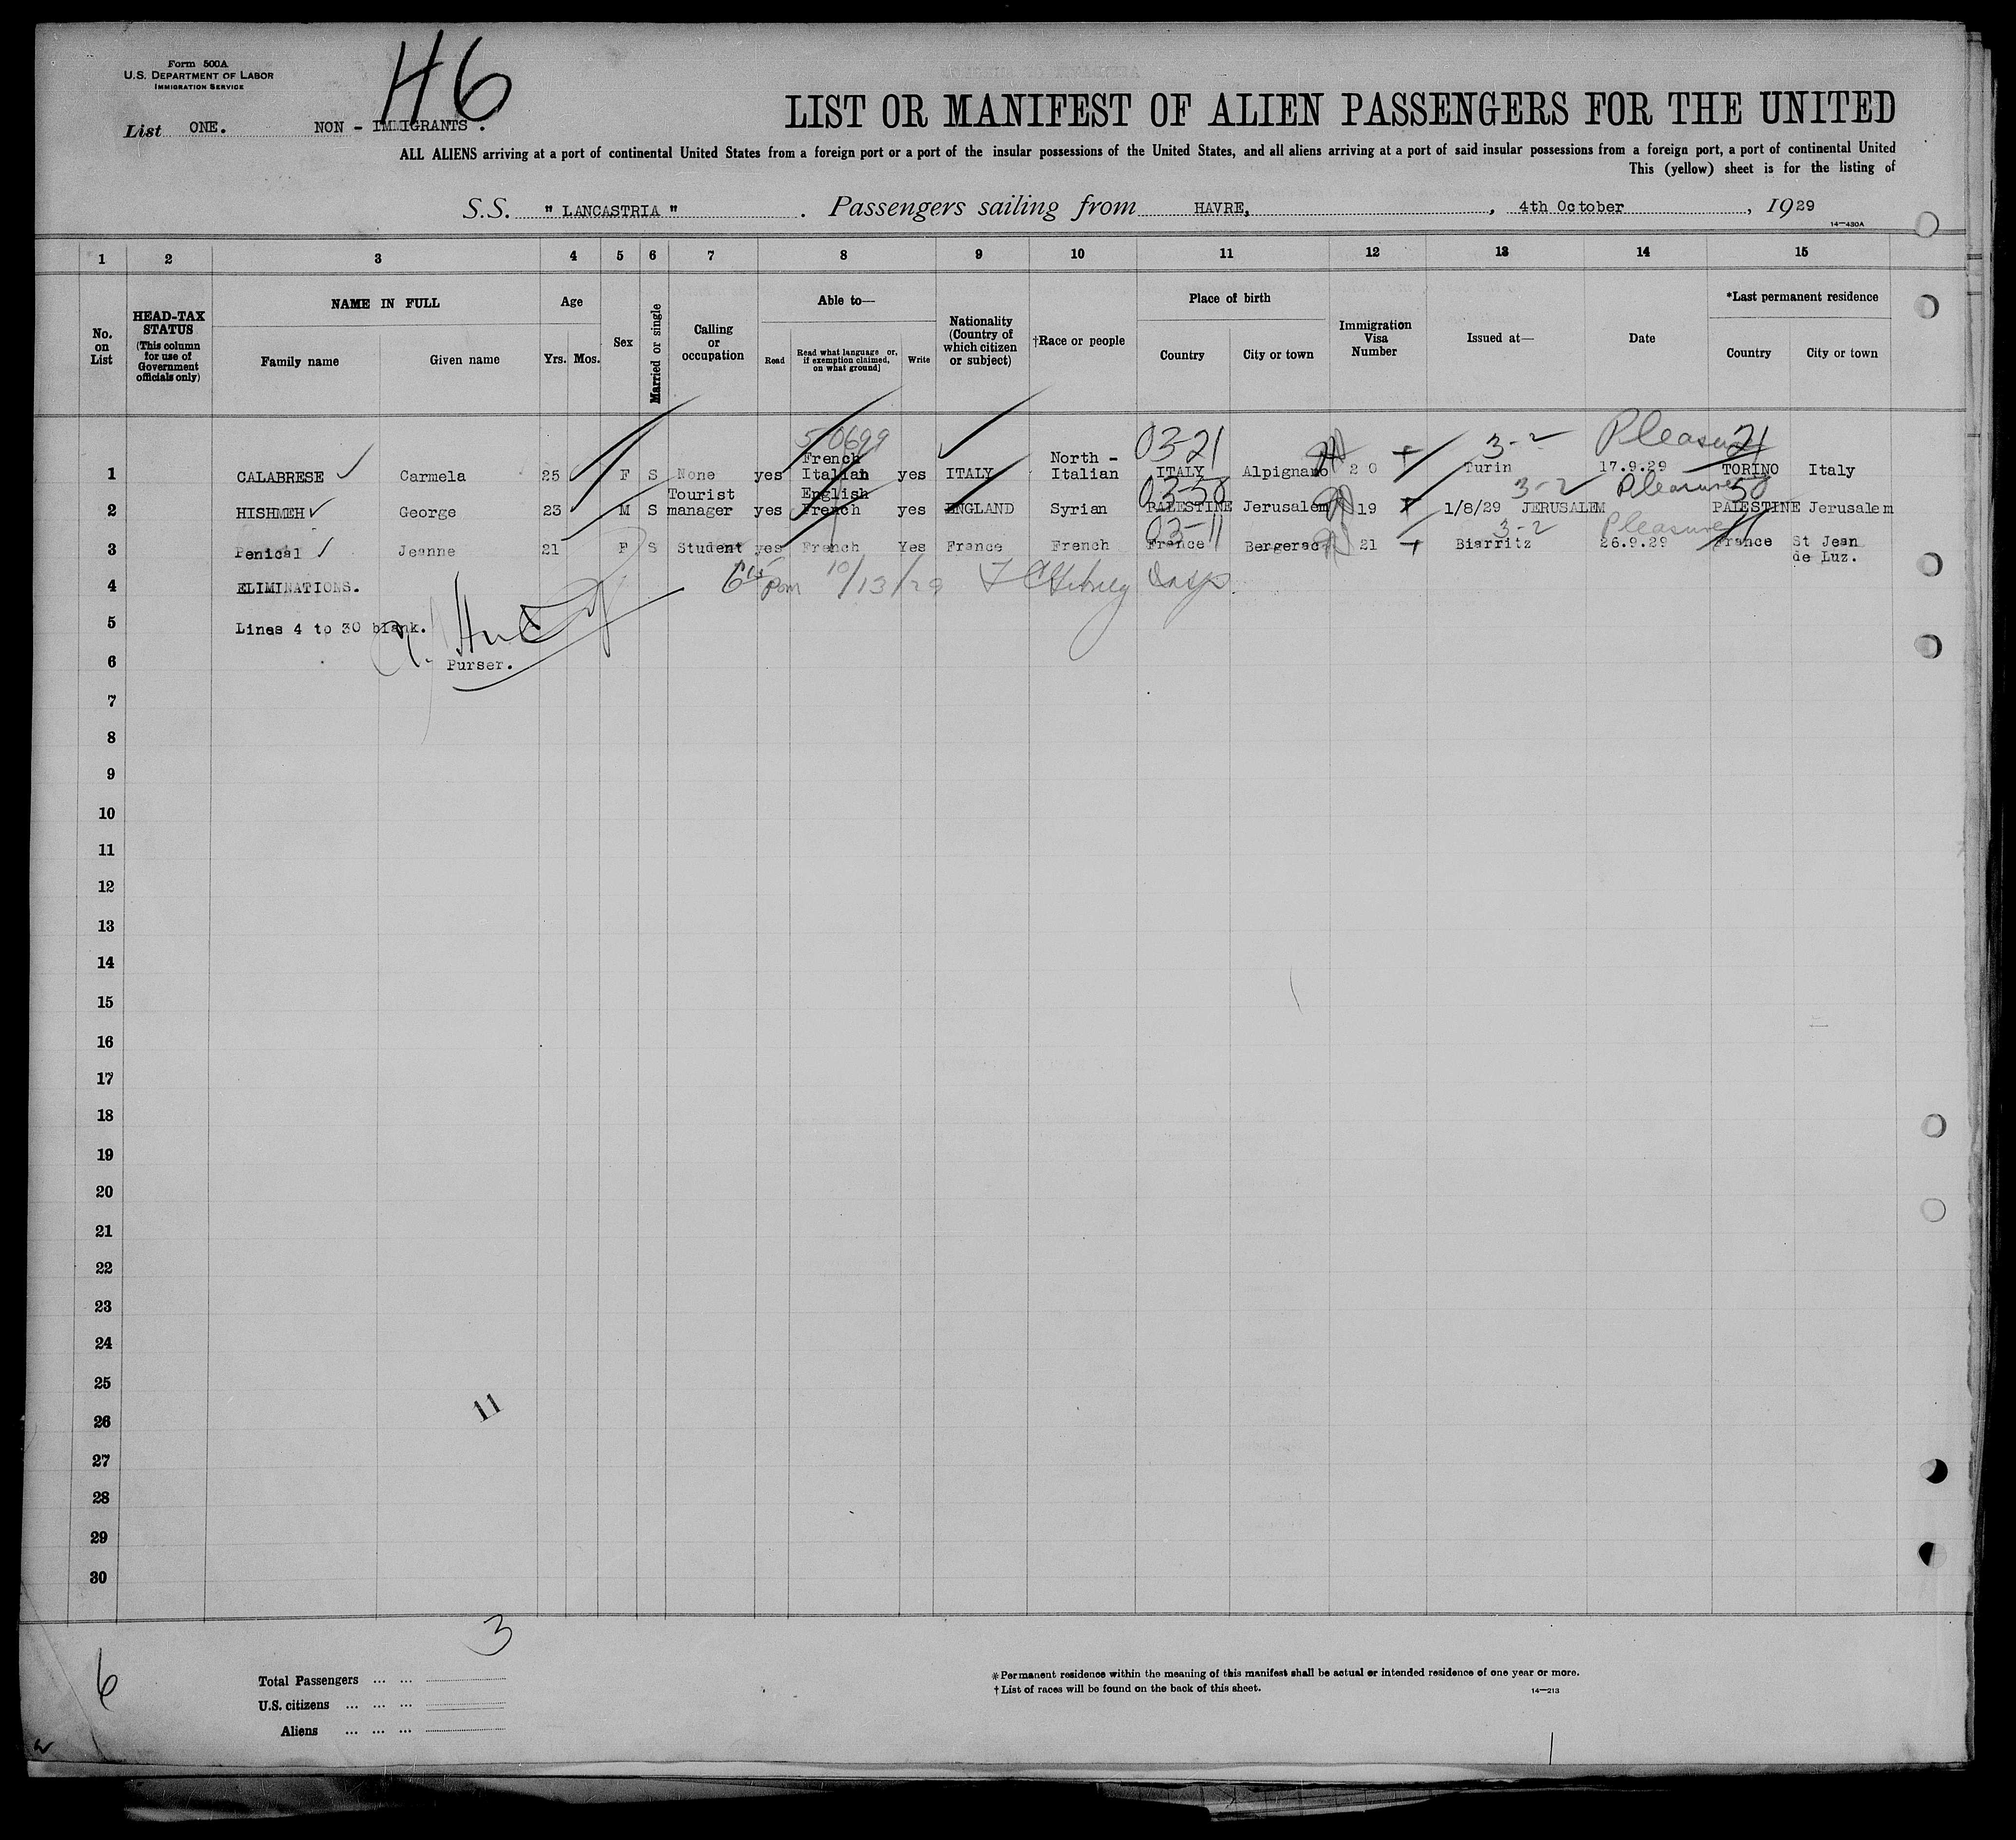 Form 500A
U.S. DEPARTMENT OF LABOR
IMMIGRATION SERVICE
H6
List ONE. NON - IMMIGRANTS.
LIST OR MANIFEST OF ALIEN PASSENGERS FOR THE UNITED
ALL ALIENS arriving at a port of continental United States from a foreign port or a port of the insular possessions of the United States, and all aliens arriving at a port of said insular possessions from a foreign port, a port of continental United
This (yellow) sheet is for the listing of
S.S. " LANCASTRIA " . Passengers sailing from HAVRE, , 4th October , 1929
14—430A
1 2 3 4 5 6 7 8 9 10 11 12 13 14 15
No. on List
HEAD-TAX STATUS
(This column for use of Government officials only)
NAME IN FULL
Family name Given name
Age
Yrs. Mos.
Sex
Married or single
Calling or occupation
Able to—
Read Read what language or, if exemption claimed, on what ground] Write
Nationality (Country of which citizen or subject)
†Race or people
Place of birth
Country City or town
Immigration Visa Number
Issued at—
Date
*Last permanent residence
Country City or town
5-0699 03-21 3-2 Pleasure 21
1 CALABRESE Carmela 25 F S None yes French Italian yes ITALY North - Italian ITALY Alpignano 20 Turin 17.9.29 TORINO Italy
03-50 3-2 Pleasure 50
2 HISHMEH George 23 M S Tourist manager yes English French yes ENGLAND Syrian PALESTINE Jerusalem 19 1/8/29 JERUSALEM PALESTINE Jerusalem
03-11 3-2 Pleasure 11
3 Penical Jeanne 21 F S Student yes French Yes France French France Bergerac 21 Biarritz 26.9.29 France St Jean de Luz.
4 ELIMINATIONS. 6 15 pm 10/13/29
5 Lines 4 to 30 blank.
6 Purser.
7
8
9
10
11
12
13
14
15
16
17
18
19
20
21
22
23
24
25
11
26
27
28
29
30
3
6
Total Passengers ... ...
U.S. citizens ... ... ...
Aliens ... ... ...
*Permanent residence within the meaning of this manifest shall be actual or intended residence of one year or more.
†List of races will be found on the back of this sheet.
14—213